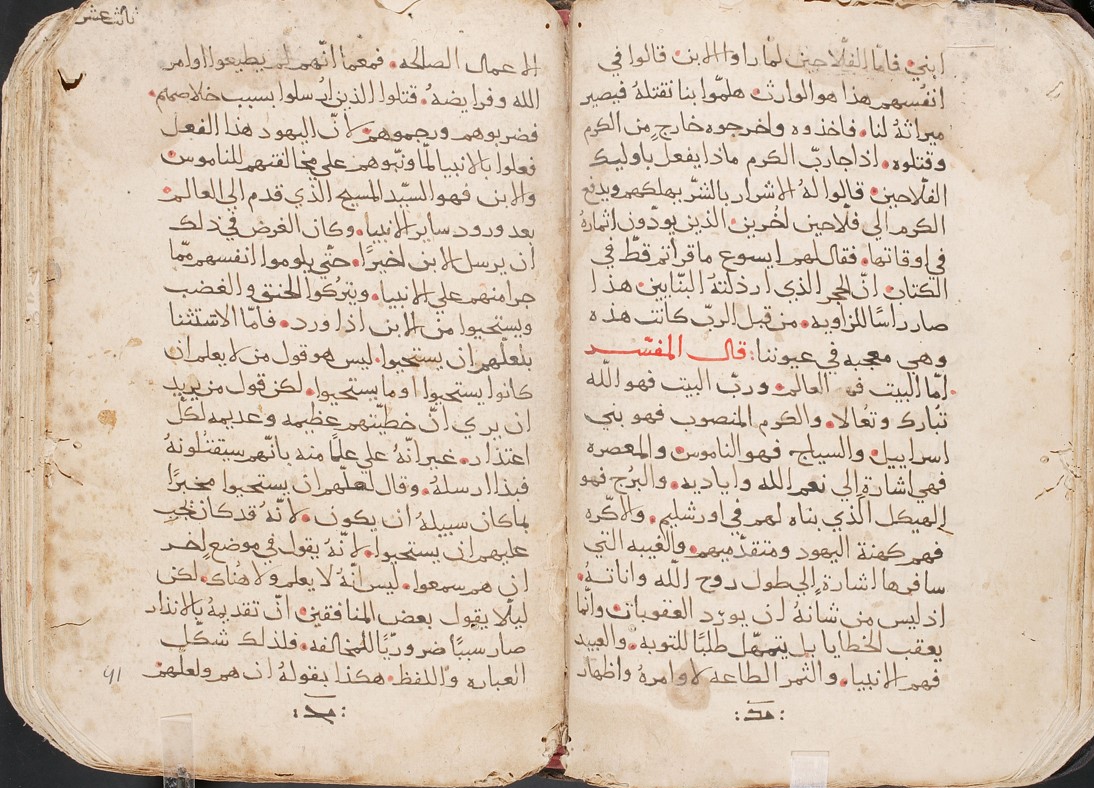 ابني. فامّا الفلّاحين لمّا راوا الابن قالوا في
انفُسهم هذا هو الوارث. هلمّوا بنا نقتلهُ فيصير
ميراثهُ لنا. فاخذوه واخرجوه خارج من الكرم
وقتلوه. اذا جا ربّ الكرم ماذا يفعل باوليك
الفلّاحين. قالوا لهُ الاشرار بالشرّ يهلكهم ويدفع
الكرم الي فلّاحين اخُرين الذين يودّون اثمارهُ
في اوقاتها. فقال لهم ايسوع ما قراتم قطّ في
الكتاب انّ الحجر الذي ارذلتهُ البنّايين هذا
صار راسًا للزاويه. من قبل الربّ كانت هذه
وهي معجبه في عيوننا: قال المفسّر
امّا البيت فهو العالم. وربّ البيت فهو اللّه
تبارك وتعالا. والكرم المنصوب فهو بني
اسراييل. والسياج فهو الناموس. والمعصره
فهي اشارة الي نعم الله واياديه. والبُرج فهو
الهيكل الّذي بناه لهم في اورشليم. والاكره
فهم كهنة اليهود ومتقدّميهم. والغيبه التي
سافرها اشارة الي طول روح اللّه واناتهُ.
اذ ليس من شانهُ ان يورّد العقوبات وانّما
يعقب الخطايا بل يتمهّل طلبًا للتوبه. والعبيد
فهم الانبيا. والثمر الطاعه لاوامرهُ واظهار
ثالث عشر
الاعمال الصالحه. فمعما انّهم لم يطيعوا اوامر
الله وفرايضهُ. قتلوا الذين ارسلوا بسبب خلاصهم.
فضربوهم ورجموهم. لانّ اليهود هذا الفعل
فعلوا بالانبيا لمّا ونّبوهم علي مخالفتهم للناموس
والابن فهو السيّد المسيح الّذي قدم الي العالم
بعد ورود ساير الانبيا. وكان الغرض في ذلك
ان يرسل الابن اخيرًا. حتّي يلوموا انفسهم ممّا
جرا منهم علي الانبيا. ويتركوا الحنق والغضب
ويستحيوا من الابن اذا ورد. فامّا الاستثنا
بلعلّهم ان يستحيوا. ليس هو قول من لا يعلم ان
كانوا يستحيوا او ما يستحيوا. لكن قول من يريد
ان يري انّ خطيّتهم عظيمه وعديمه لكلّ
اعتذار. غير انّهُ علي علمًا منه بانّهم سيقتلونهُ
فبذا ارسلهُ. وقال لعلّهم ان يستحيوا مخبرًا
بما كان سبيلهُ ان يكون. لانّهُ قد كان يجب
عليهم ان يستحيوا. لانّهُ يقول في موضع اخر
ان هم سمعوا. ليس انّهُ لا يعلم ولا هُناك. لكن
ليلّا يقول بعض المنافقين انّ تقديمهُ بالانذار
صار سببًا ضروريًا للمخالفه. فلذلك شكّل
العباره واللفظ. هكذا بقولهُ ان هم ولعلّهم
41